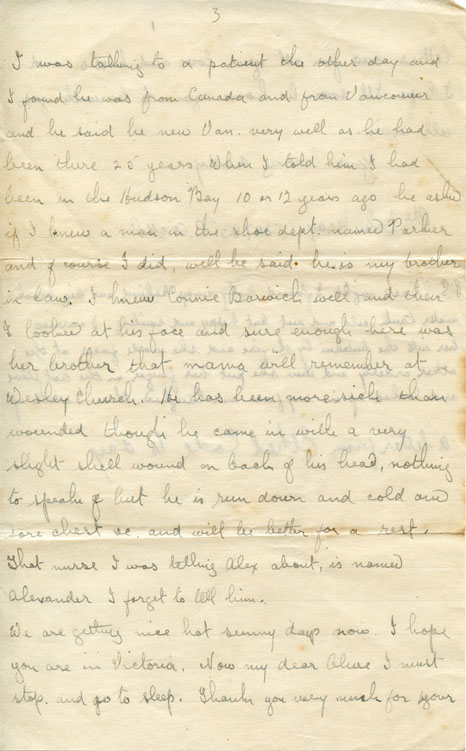 3
I was talking to a patient the other day and
I found he was from Canada and from Vancouver
and he said he new Van. very well as he had
been there 25 years When I told him I had
been in the Hudson Bay 10 or 12 years ago he asked
if I knew a man in the shoe dept. named Parker
and of course I did, well he said he is my brother
in law. I knew Connie Barwick well and then
I looked at his face and sure enough here was
her brother that mama will remember at
Wesley Church. He has been more sick than
wounded though he came in with a very
slight shell wound on back of his head, nothing
to speak of but he is run down and cold and
sore chest &c. and will be better for a rest.
That nurse I was telling Alex about, is named
Alexander I forget to tell him.
We are getting nice hot sunny days now. I hope
you are in Victoria. Now my dear I must
stop. and go to sleep. Thank you very much for your